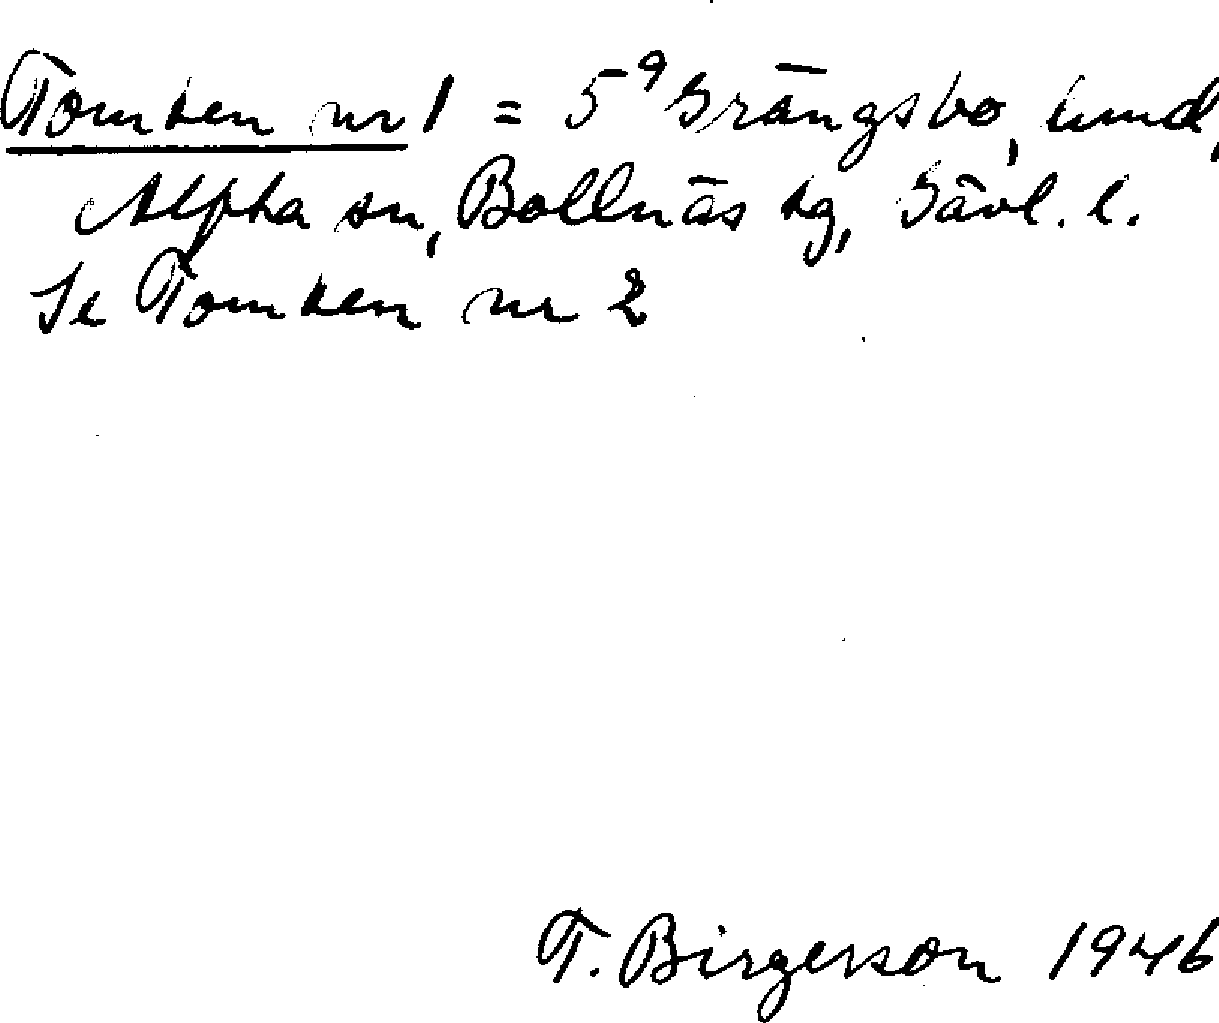 Tomten nr 1 = 5⁹ Grängsbo, hmd,
Alfta sn, Bollnäs tg, Gävl. l.
Se Tomten nr 2
T. Birgerson 1946